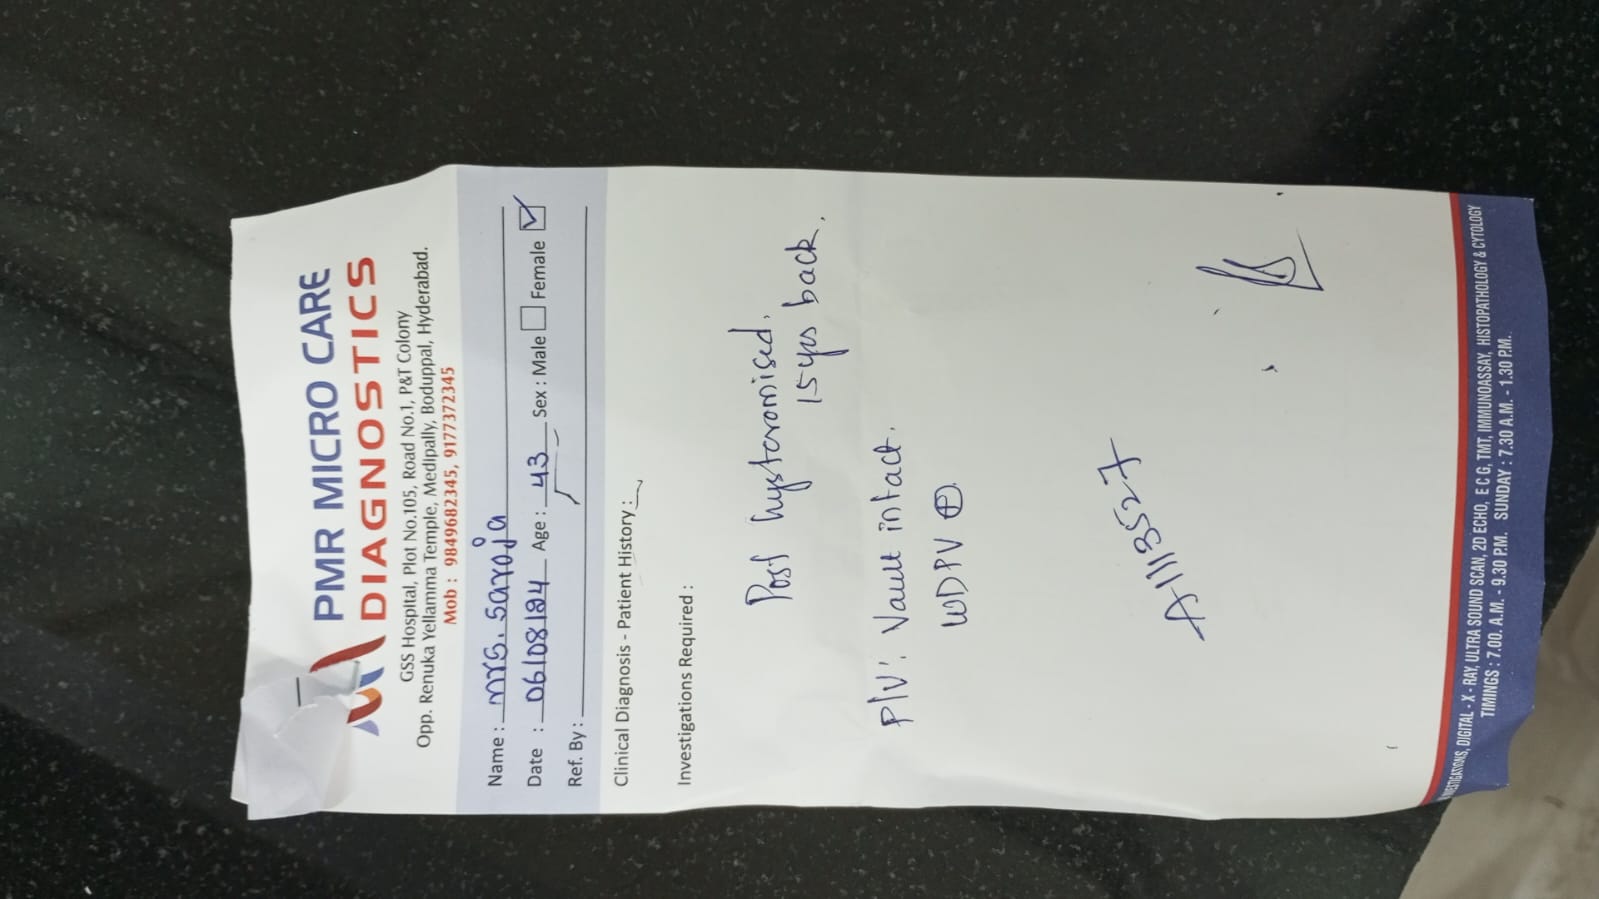 PMR MICRO CARE
DIAGNOSTICS
GSS Hospital, Plot No.105, Road No.1, P&T Colony
Opp. Renuka Yellamma Temple, Medipally, Boduppal, Hyderabad.
Mob : 9849682345, 9177372345
Name : Mrs. Saroja
Date : 06/08/24 Age : 43 Sex : Male Female
Ref. By :
Clinical Diagnosis - Patient History :
Investigations Required :
Post hysteromised.
15 yrs back.
P/V: Vault intact.
WDPV +
A1113527
INVESTIGATIONS, DIGITAL - X - RAY, ULTRA SOUND SCAN, 2D ECHO, E C G, TMT, IMMUNOASSAY, HISTOPATHOLOGY & CYTOLOGY
TIMINGS : 7.00. A.M. - 9.30 P.M. SUNDAY : 7.30 A.M. - 1.30 P.M.